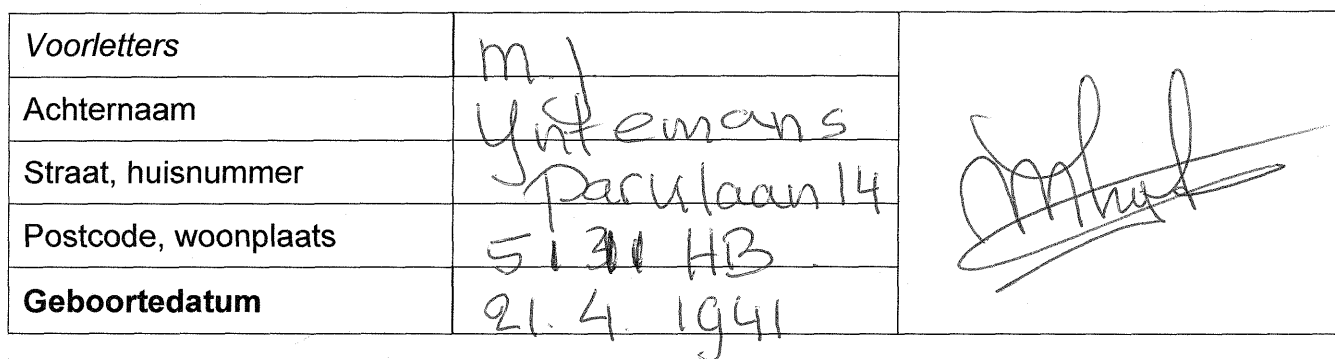 Voorletters M.J
Achternaam Yntemans
Straat, huisnummer Parklaan 14
Postcode, woonplaats 5131 HB
Geboortedatum 21.4.1941